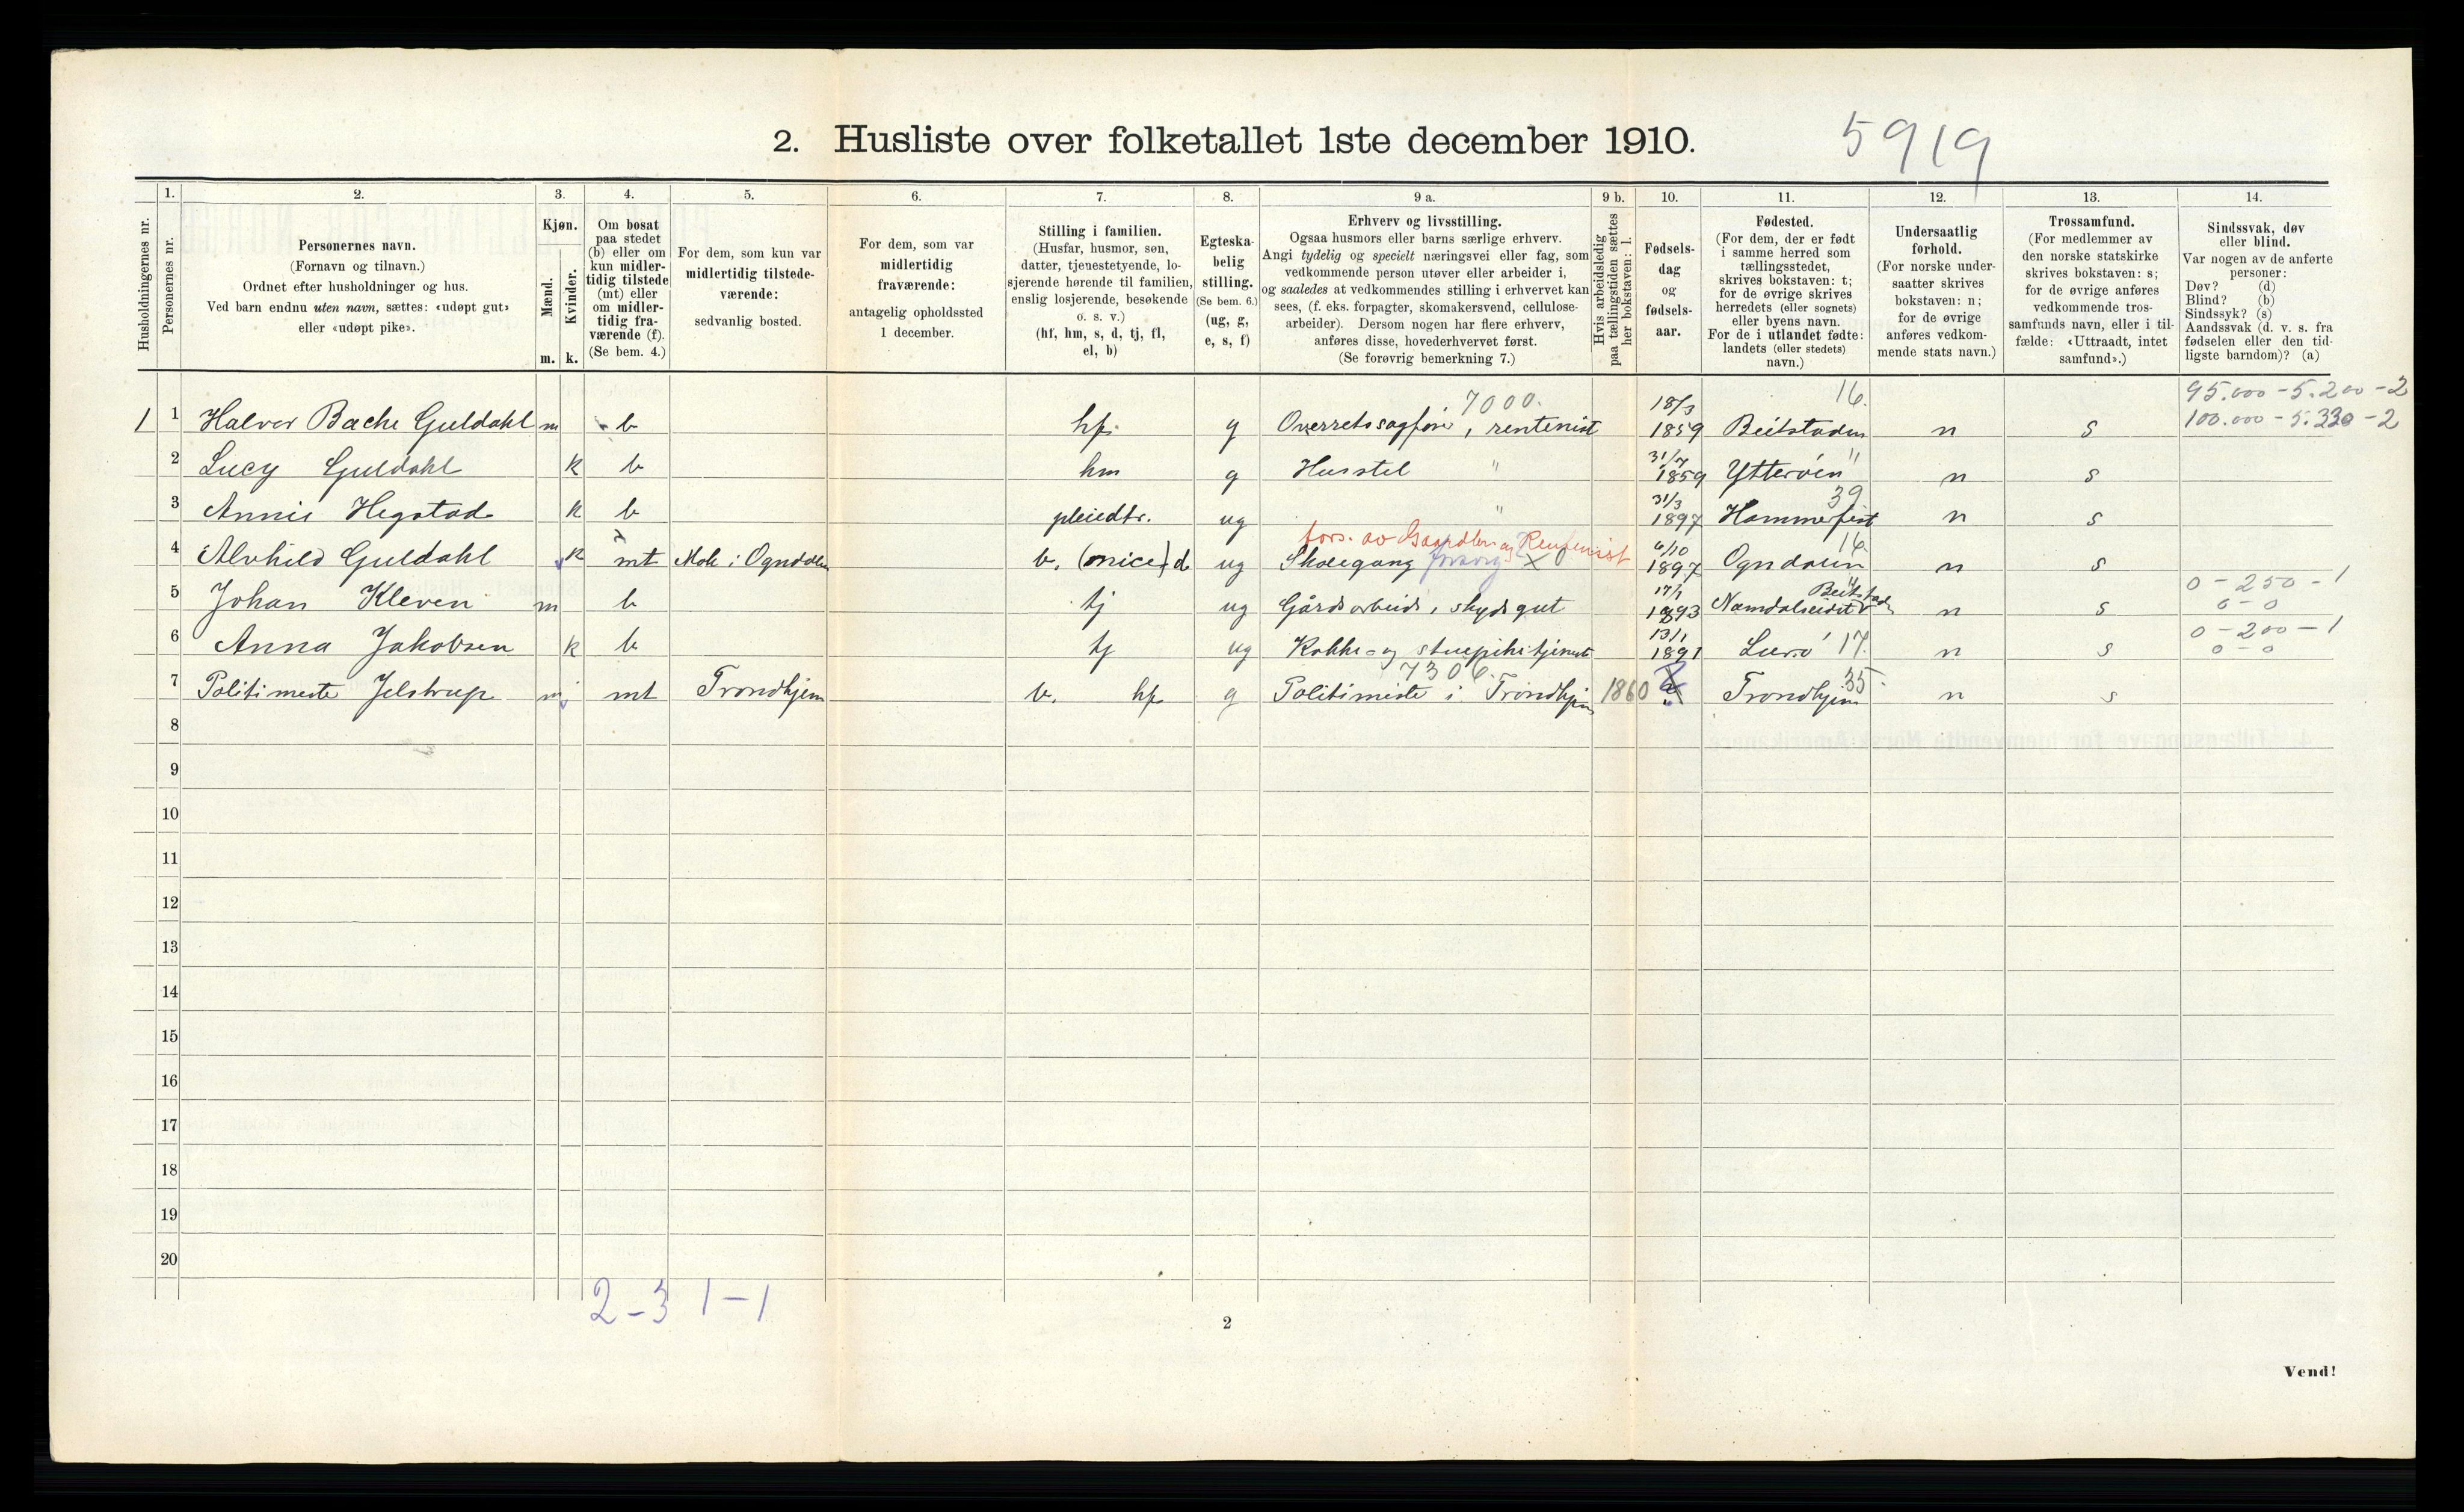 2. Husliste over folketallet 1ste december 1910.
5919
Husholdningernes nr.
1.
Personernes nr.
2.
Personernes navn.
(Fornavn og tilnavn.)
Ordnet efter husholdninger og hus.
Ved barn endnu uten navn, sættes: «udøpt gut»
eller «udøpt pike».
3.
Kjøn.
Mænd.
Kvinder.
m.
k.
4.
Om bosat
paa stedet
(b) eller om
kun midler-
tidig tilstede
(mt) eller
om midler-
tidig fra-
værende (f).
(Se bem. 4.)
5.
For dem, som kun var
midlertidig tilstede-
værende:
sedvanlig bosted.
6.
For dem, som var
midlertidig
fraværende:
antagelig opholdssted
1 december.
7.
Stilling i familien.
(Husfar, husmor, søn,
datter, tjenestetyende, lo-
sjerende hørende til familien,
enslig losjerende, besøkende
o. s. v.)
(hf, hm, s, d, tj, fl,
el, b)
8.
Egteska-
belig
stilling.
(Se bem. 6.)
(ug, g,
e, s, f)
9 a.
Erhverv og livsstilling.
Ogsaa husmors eller barns særlige erhverv.
Angi tydelig og specielt næringsvei eller fag, som
vedkommende person utøver eller arbeider i,
og saaledes at vedkommendes stilling i erhvervet kan
sees, (f. eks. forpagter, skomakersvend, cellulose-
arbeider). Dersom nogen har flere erhverv,
anføres disse, hovederhvervet først.
(Se forøvrig bemerkning 7.)
9 b.
Hvis arbeidsledig
paa tællingstiden sættes
her bokstaven: l.
10.
Fødsels-
dag
og
fødsels-
aar.
11.
Fødested.
(For dem, der er født
i samme herred som
tællingsstedet,
skrives bokstaven: t;
for de øvrige skrives
herredets (eller sognets)
eller byens navn.
For de i utlandet fødte:
landets (eller stedets)
navn.)
12.
Undersaatlig
forhold.
(For norske under-
saatter skrives
bokstaven: n;
for de øvrige
anføres vedkom-
mende stats navn.)
13.
Trossamfund.
(For medlemmer av
den norske statskirke
skrives bokstaven: s;
for de øvrige anføres
vedkommende tros-
samfunds navn, eller i til-
fælde: «Uttraadt, intet
samfund».)
14.
Sindssvak, døv
eller blind.
Var nogen av de anførte
personer:
Døv? (d)
Blind? (b)
Sindssyk? (s)
Aandssvak (d. v. s. fra
fødselen eller den tid-
ligste barndom)? (a)
7000. 18/3 16. 95.000 - 5.200 - 2
1 1 Halvor Bache Guldahl m b hf. g Overretssagfører, rentenist 1859 Beitstaden n s 100.000 - 5.330 - 2
31/7 "
2 Lucy Guldahl k b hm g Husstel " 1859 Ytterøen n s
31/3 39
3 Annie Hegstad k b pleiedtr. ug " 1897 Hammerfest n s
fors. av Gaardbr. og Rentenist 6/10 16.
4 Alvhild Guldahl k mt Mok i Ogndalen b. (niece) d ug Skolegang forsørg x 1897 Ogndalen n s
17/1 Beitstaden 0 - 250 - 1
5 Johan Kleven m b tj ug Gårdsarbeid, skydsgut 1893 Namdalseidet n s 0 - 0
13/1 0 - 200 - 1
6 Anna Jakobsen k b tj ug Kokke- og stuepiketjeneste 1891 Lurø 17. n s 0 - 0
7306. 35
7 Politimeste Jelstrup m mt Trondhjem b. hf g Politimeste i Trondhjem 1860 Trondhjem n s
8
9
10
11
12
13
14
15
16
17
18
19
20
2-3 1-1
2
Vend!